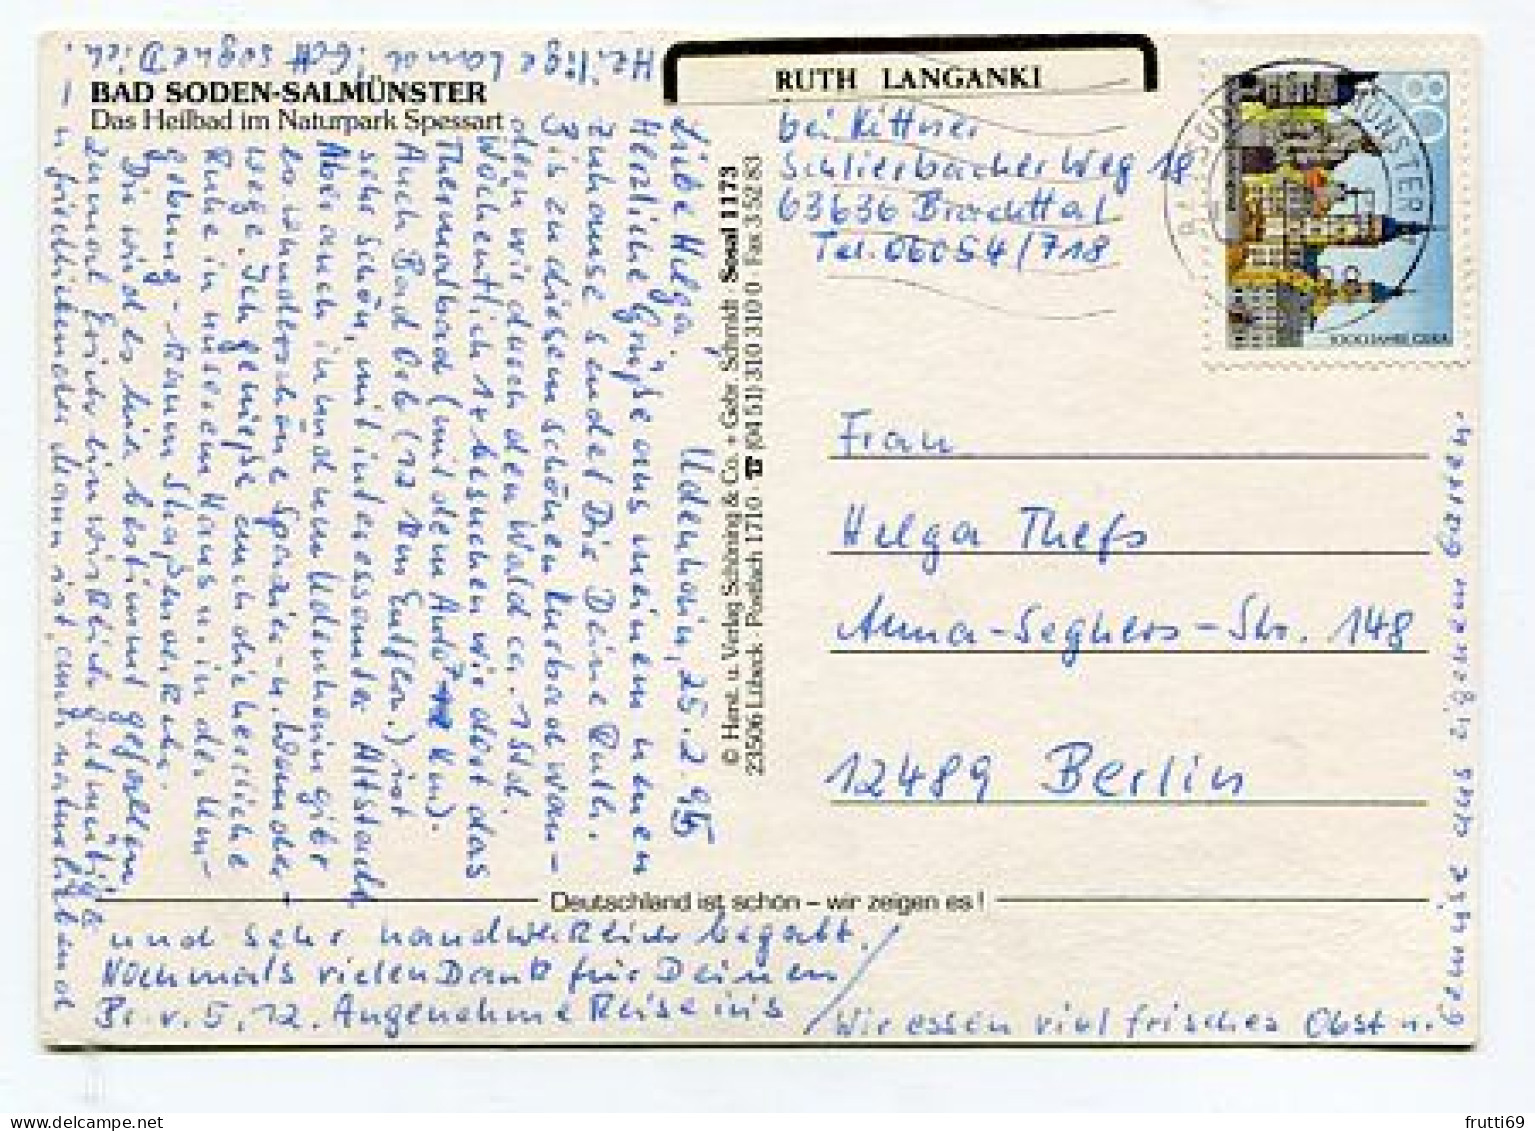 BAD SODEN-SALMÜNSTER
Das Heilbad im Naturpark Spessart
RUTH LANGANKI
bei Kittner
Schlierbacher Weg 18
63636 Brachttal
Tel. 06054/718
80
1000 JAHRE GERA
Udenhain, 25.2.95
Liebe Helga,
Herzliche Grüße aus meinem neuen
Zuhause sendet Dir Deine Ruth.
Bis zu diesem schönen Kurbad wan-
dern wir durch den Wald ca. 1 Std.
Wöchentlich 1x besuchen wir dort das
Thermalbad (mit dem Auto 7 km).
Auch Bad Orb (12 km Entfern.) ist
sehr schön, mit interessanter Altstadt.
Aber auch in und um Udenhain gibt
es wunderschöne Spazier- u. Wander-
wege. Ich genieße auch die herrliche
Ruhe in unserem Haus u. in der Um-
gebung - kaum Straßenverkehr.
Dir wird es hier bestimmt gefallen,
zumal
u. friedliebender Mann ist, auch
und sehr handwerklich begabt.
Nochmals vielen Dank für Deinen
Br. v. 5.12. Angenehme Reise ins
Heilige Land! Gott segne Dich!
Wir essen viel frisches Obst u.
© Herst. u. Verlag Schöning & Co. + Gebr. Schmidt · Sosal 1173
23506 Lübeck · Postfach 1710 · ☎ (04 51) 310 310 0 Fax 3 52 83
Deutschland ist schön – wir zeigen es!
Frau
Helga Thefs
Anna-Seghers-Str. 148
12489 Berlin
frutti69